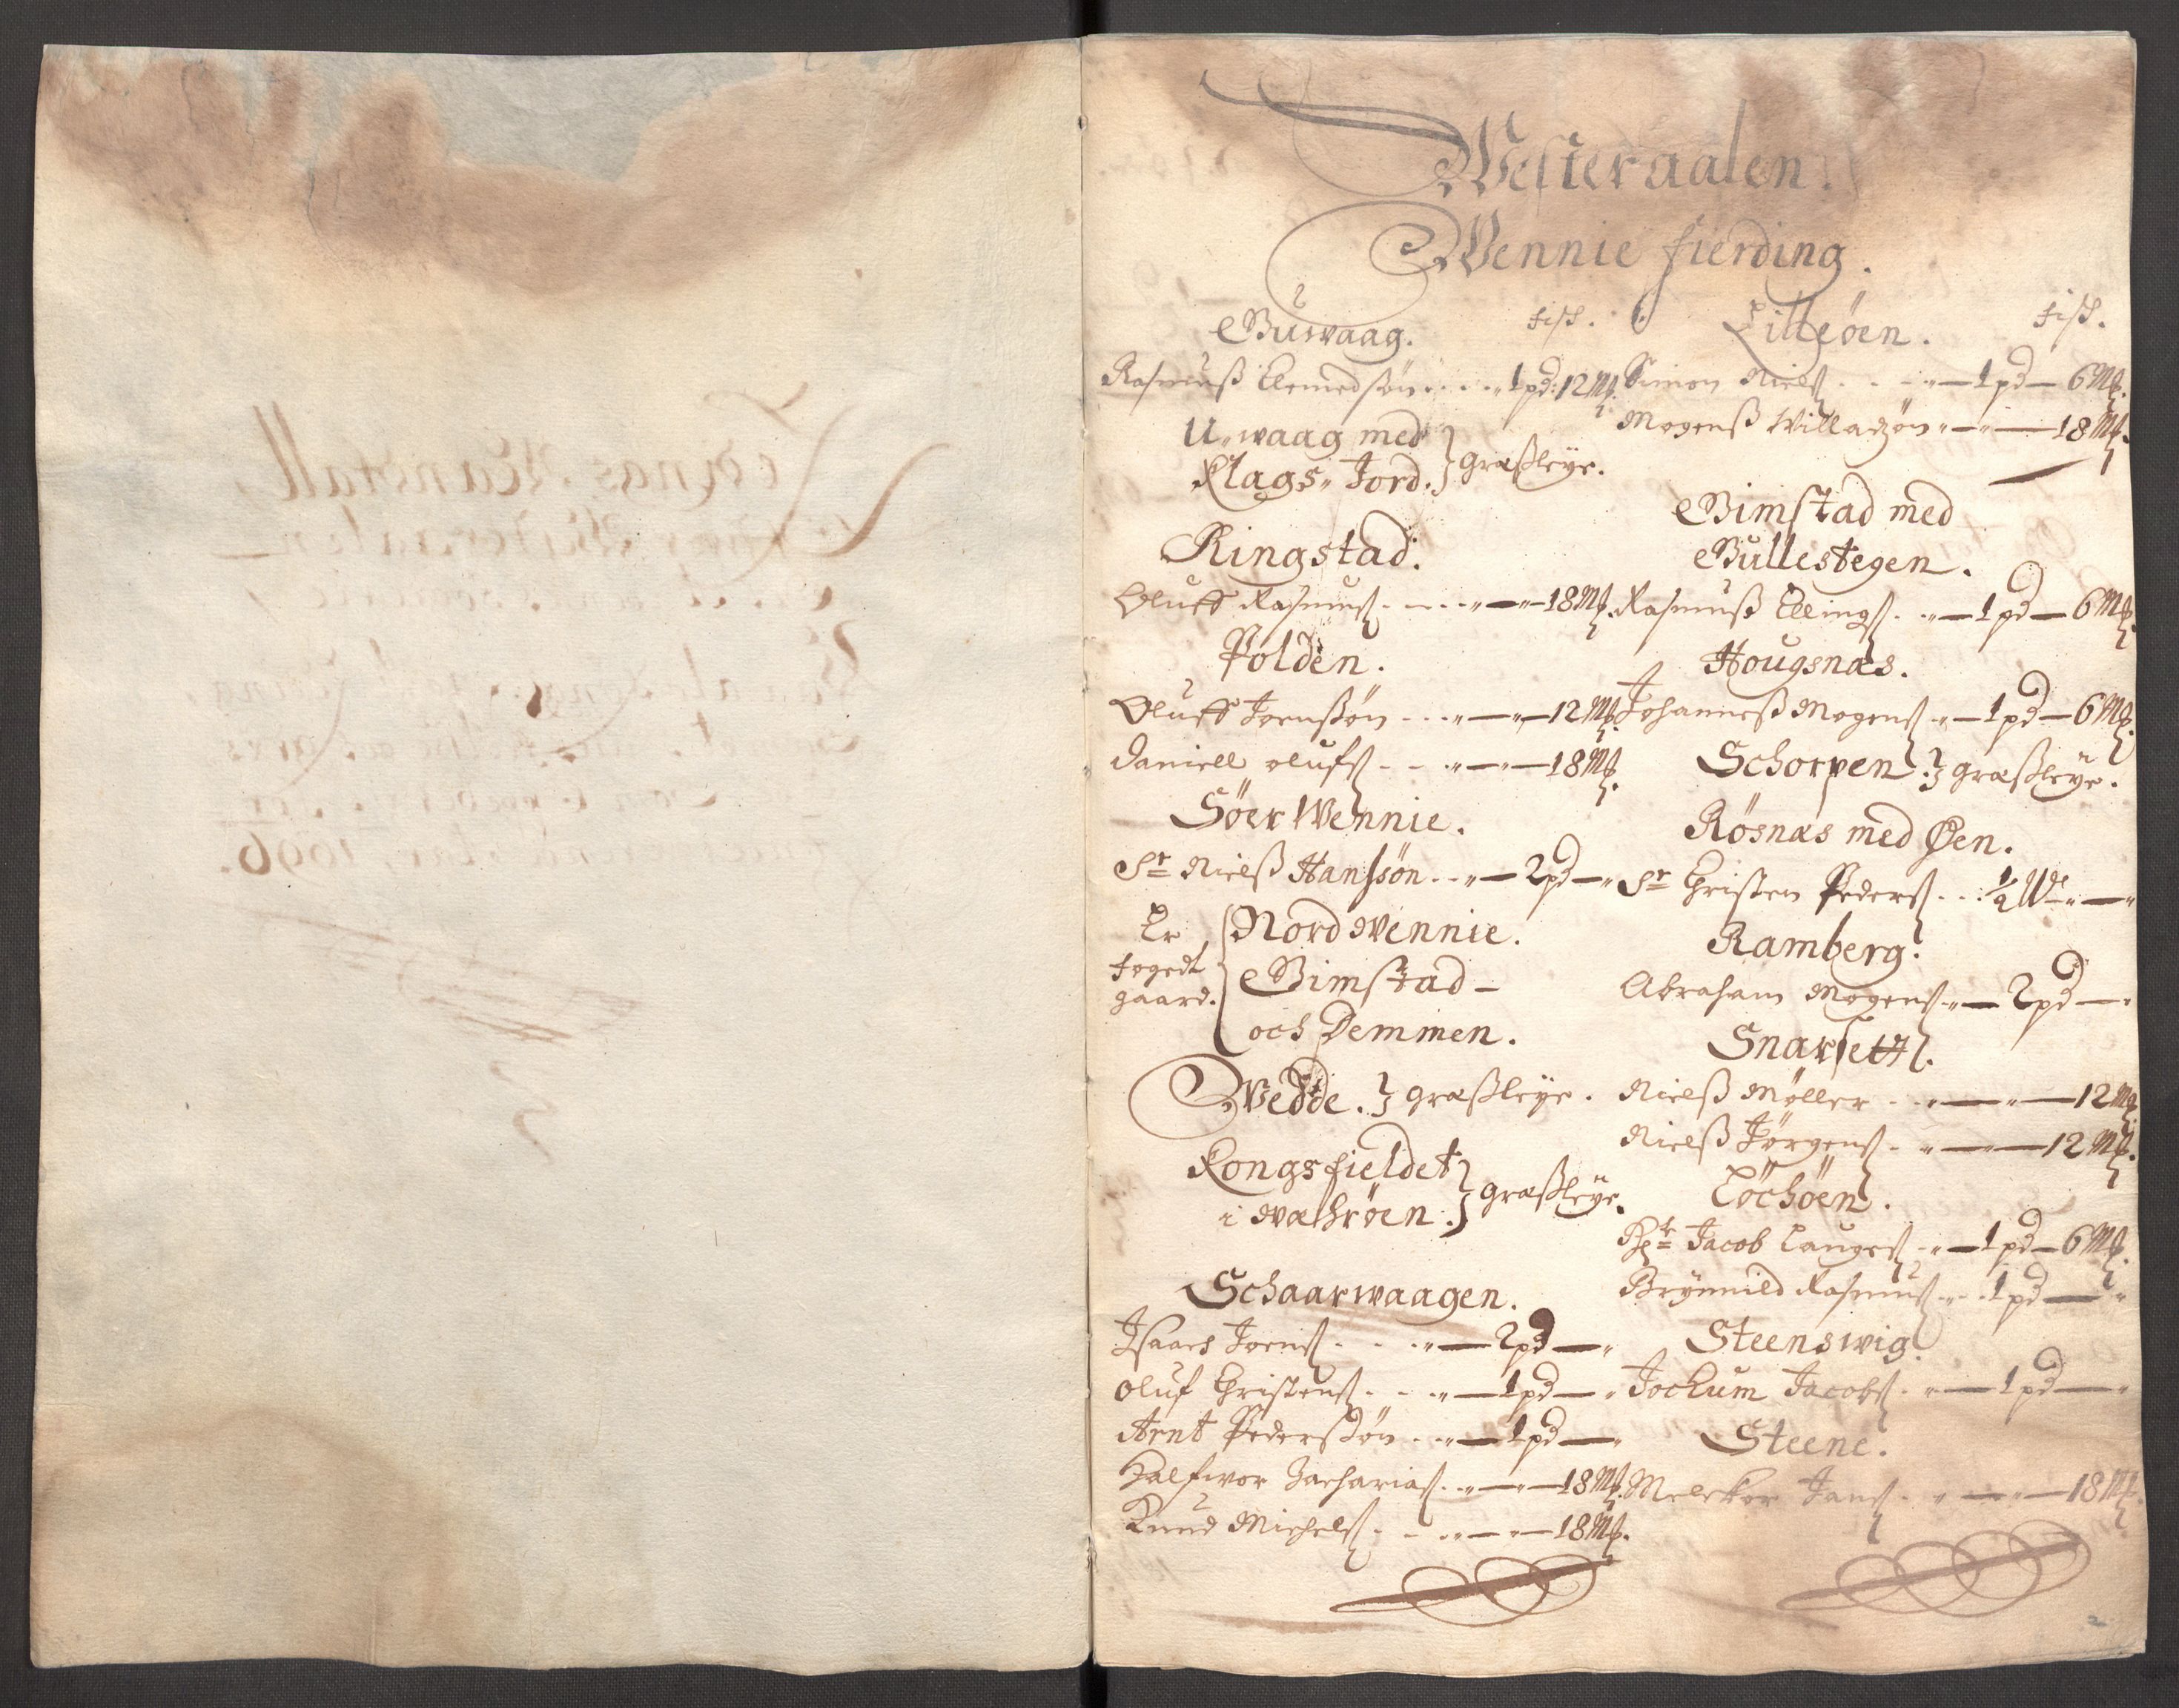 Westeraalen.
Wennie fierding.
Buwaag. fisch.
Rasmuß Clemedsøn 1 pd: 12 mk.
U-waag med
Klags-Jord. } græßleye.
Ringstad.
Oluff Rasmuß 18 mk.
Polden.
Oluff Joenßøn 12 mk.
Daniell olufs 18 mk.
Söer Wennie.
Sr Nielß Hansøn 2 pd
Er
fogedt
gaard.
Nord Wennie.
Bimstad
och Demmen.
Wedde. } græßleye.
Kongsfieldet
i Wæhröen. } græßleye.
Schaarwaagen.
Isaach Joens 2 pd
Oluf Christens 1 pd
Arnt Pederßøn 1 pd
Halfwor Zacharias 18 mk.
Knud Michels 18 mk.
Lilleöen. fisch.
Simon Niels 1 pd 6 mk.
Mogenß Willadzøn 18 mk.
Bimstad med
Bullestegen.
Rasmuß Ellings 1 pd 6 mk.
Hougsnæs.
Johanneß Mogens 1 pd 6 mk.
Schorpen } græßleye.
Rösnæs med Øen.
Sr Christen Peders ½ W
Ramberg.
Abraham Mogens 2 pd
Snarsett.
Nielß Møller 12 mk.
Nielß Jørgens 12 mk.
Löchöen.
Jacob Lauges 1 pd 6 mk.
Brynnild Rasmus 1 pd
Steenswig.
Jochum Jacobs 1 pd
Steene.
Melchor Jans 18 mk.
2